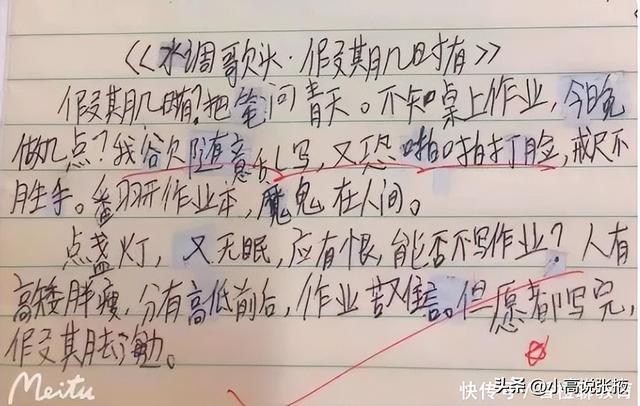 《水调歌头·假期几时有》
假期几时有?把笔问青天。不知桌上作业,今晚
做几点?我欲随意乱写,又恐啪啪打脸,戒尺不
胜手。翻开作业本,魔鬼在人间。
点盏灯,又无眠,应有恨,能否不写作业?人有
高矮胖瘦,分有高低前后,作业
但愿都写完,
假期去浪。
Meitu
快传号/
头条@小高说张掖